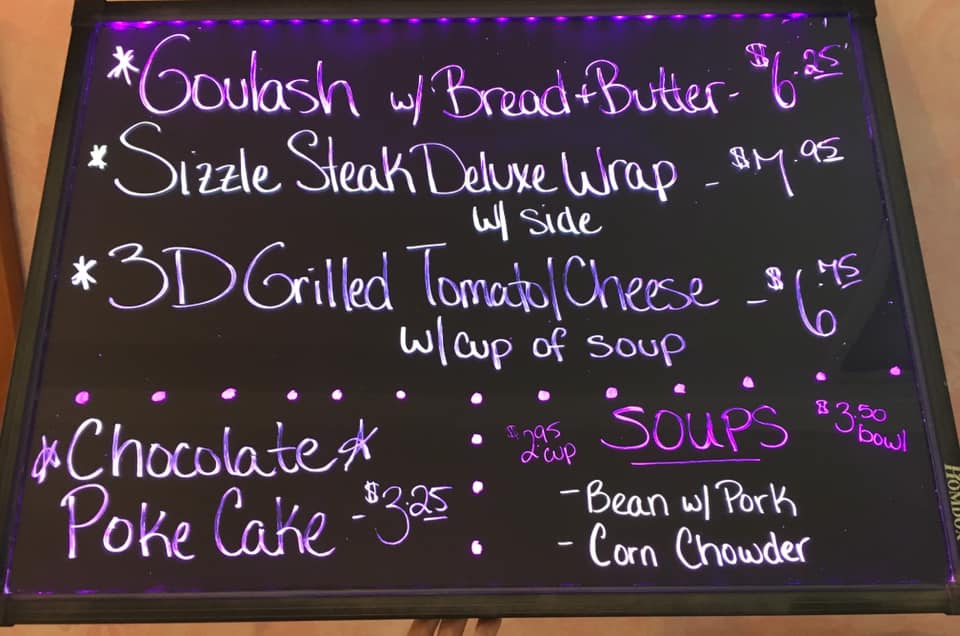 *Goulash w/ Bread+Butter- $6.25
*Sizzle Steak Deluxe Wrap - $7.95
w/ side
*3D Grilled Tomato/Cheese - $6.75
w/ cup of soup
*Chocolate*
Poke Cake - $3.25
$2.95 cup SOUPS $3.50 bowl
- Bean w/ Pork
- Corn Chowder
HOMDOX